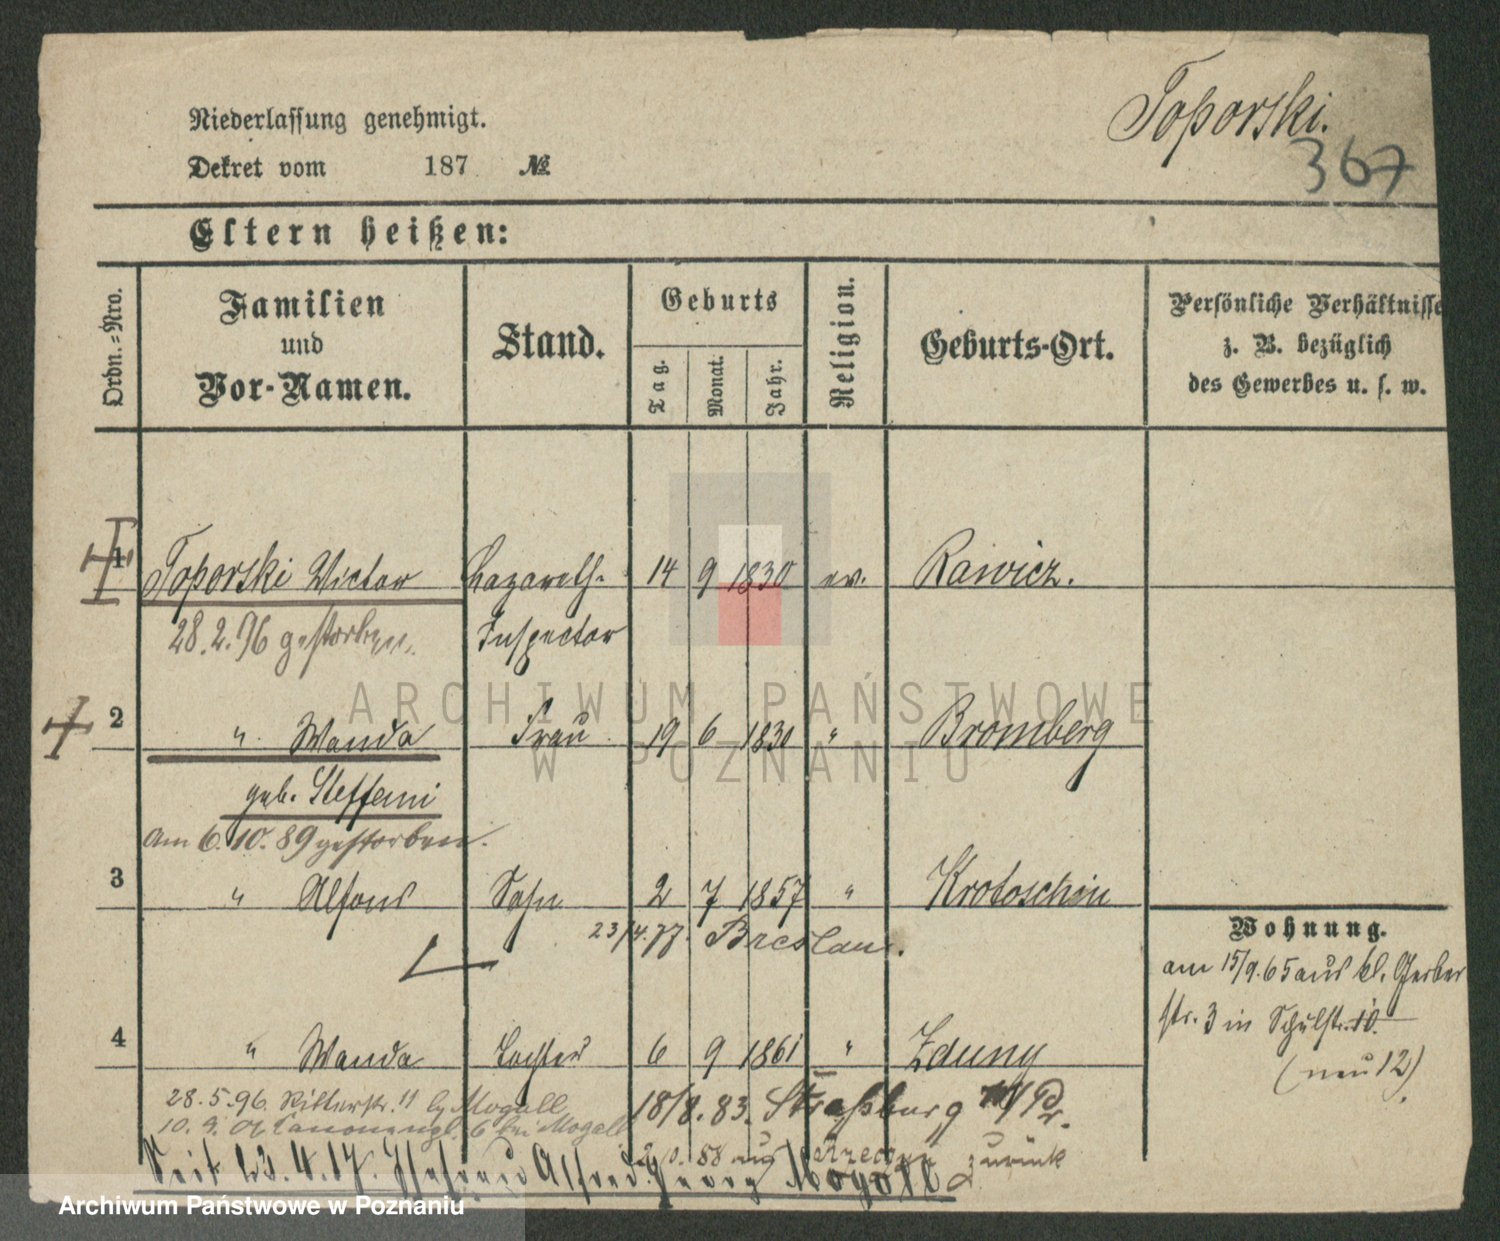 Toporski.
367
Niederlassung genehmigt.
Dekret vom 187 №
Eltern heißen:
Ordn.=Nro.
Familien und Vor-Namen.
Stand.
Geburts
Tag.
Monat.
Jahr.
Religion.
Geburts-Ort.
Persönliche Verhältnisse
z. B. bezüglich
des Gewerbes u. s. w.
1 Toporski Victor Lazareth- 14 9 1830 ev. Rawicz.
28.2.96 gestorben. Inspector
2 " Wanda Frau 19 6 1830 " Bromberg
geb. Steffani
am 6.10.89 gestorben.
3 " Alfons Sohn 2 7 1857 " Krotoschin
23/4.77. Breslau.
Wohnung.
am 15/9.65 aus kl. Gerber
str. 3 in Schulstr. 10.
(neu 12)
4 " Wanda Tochter 6 9 1861 " Zduny
28.5.96. Ritterstr. 11 Mogall
18/8.83. Straßburg W/Pr.
10.9. 6 bei Mogall
88 aus zurück
Seit 23.4.17. Ehefrau Alfred Georg Mogall
ARCHIWUM PAŃSTWOWE
W POZNANIU
Archiwum Państwowe w Poznaniu